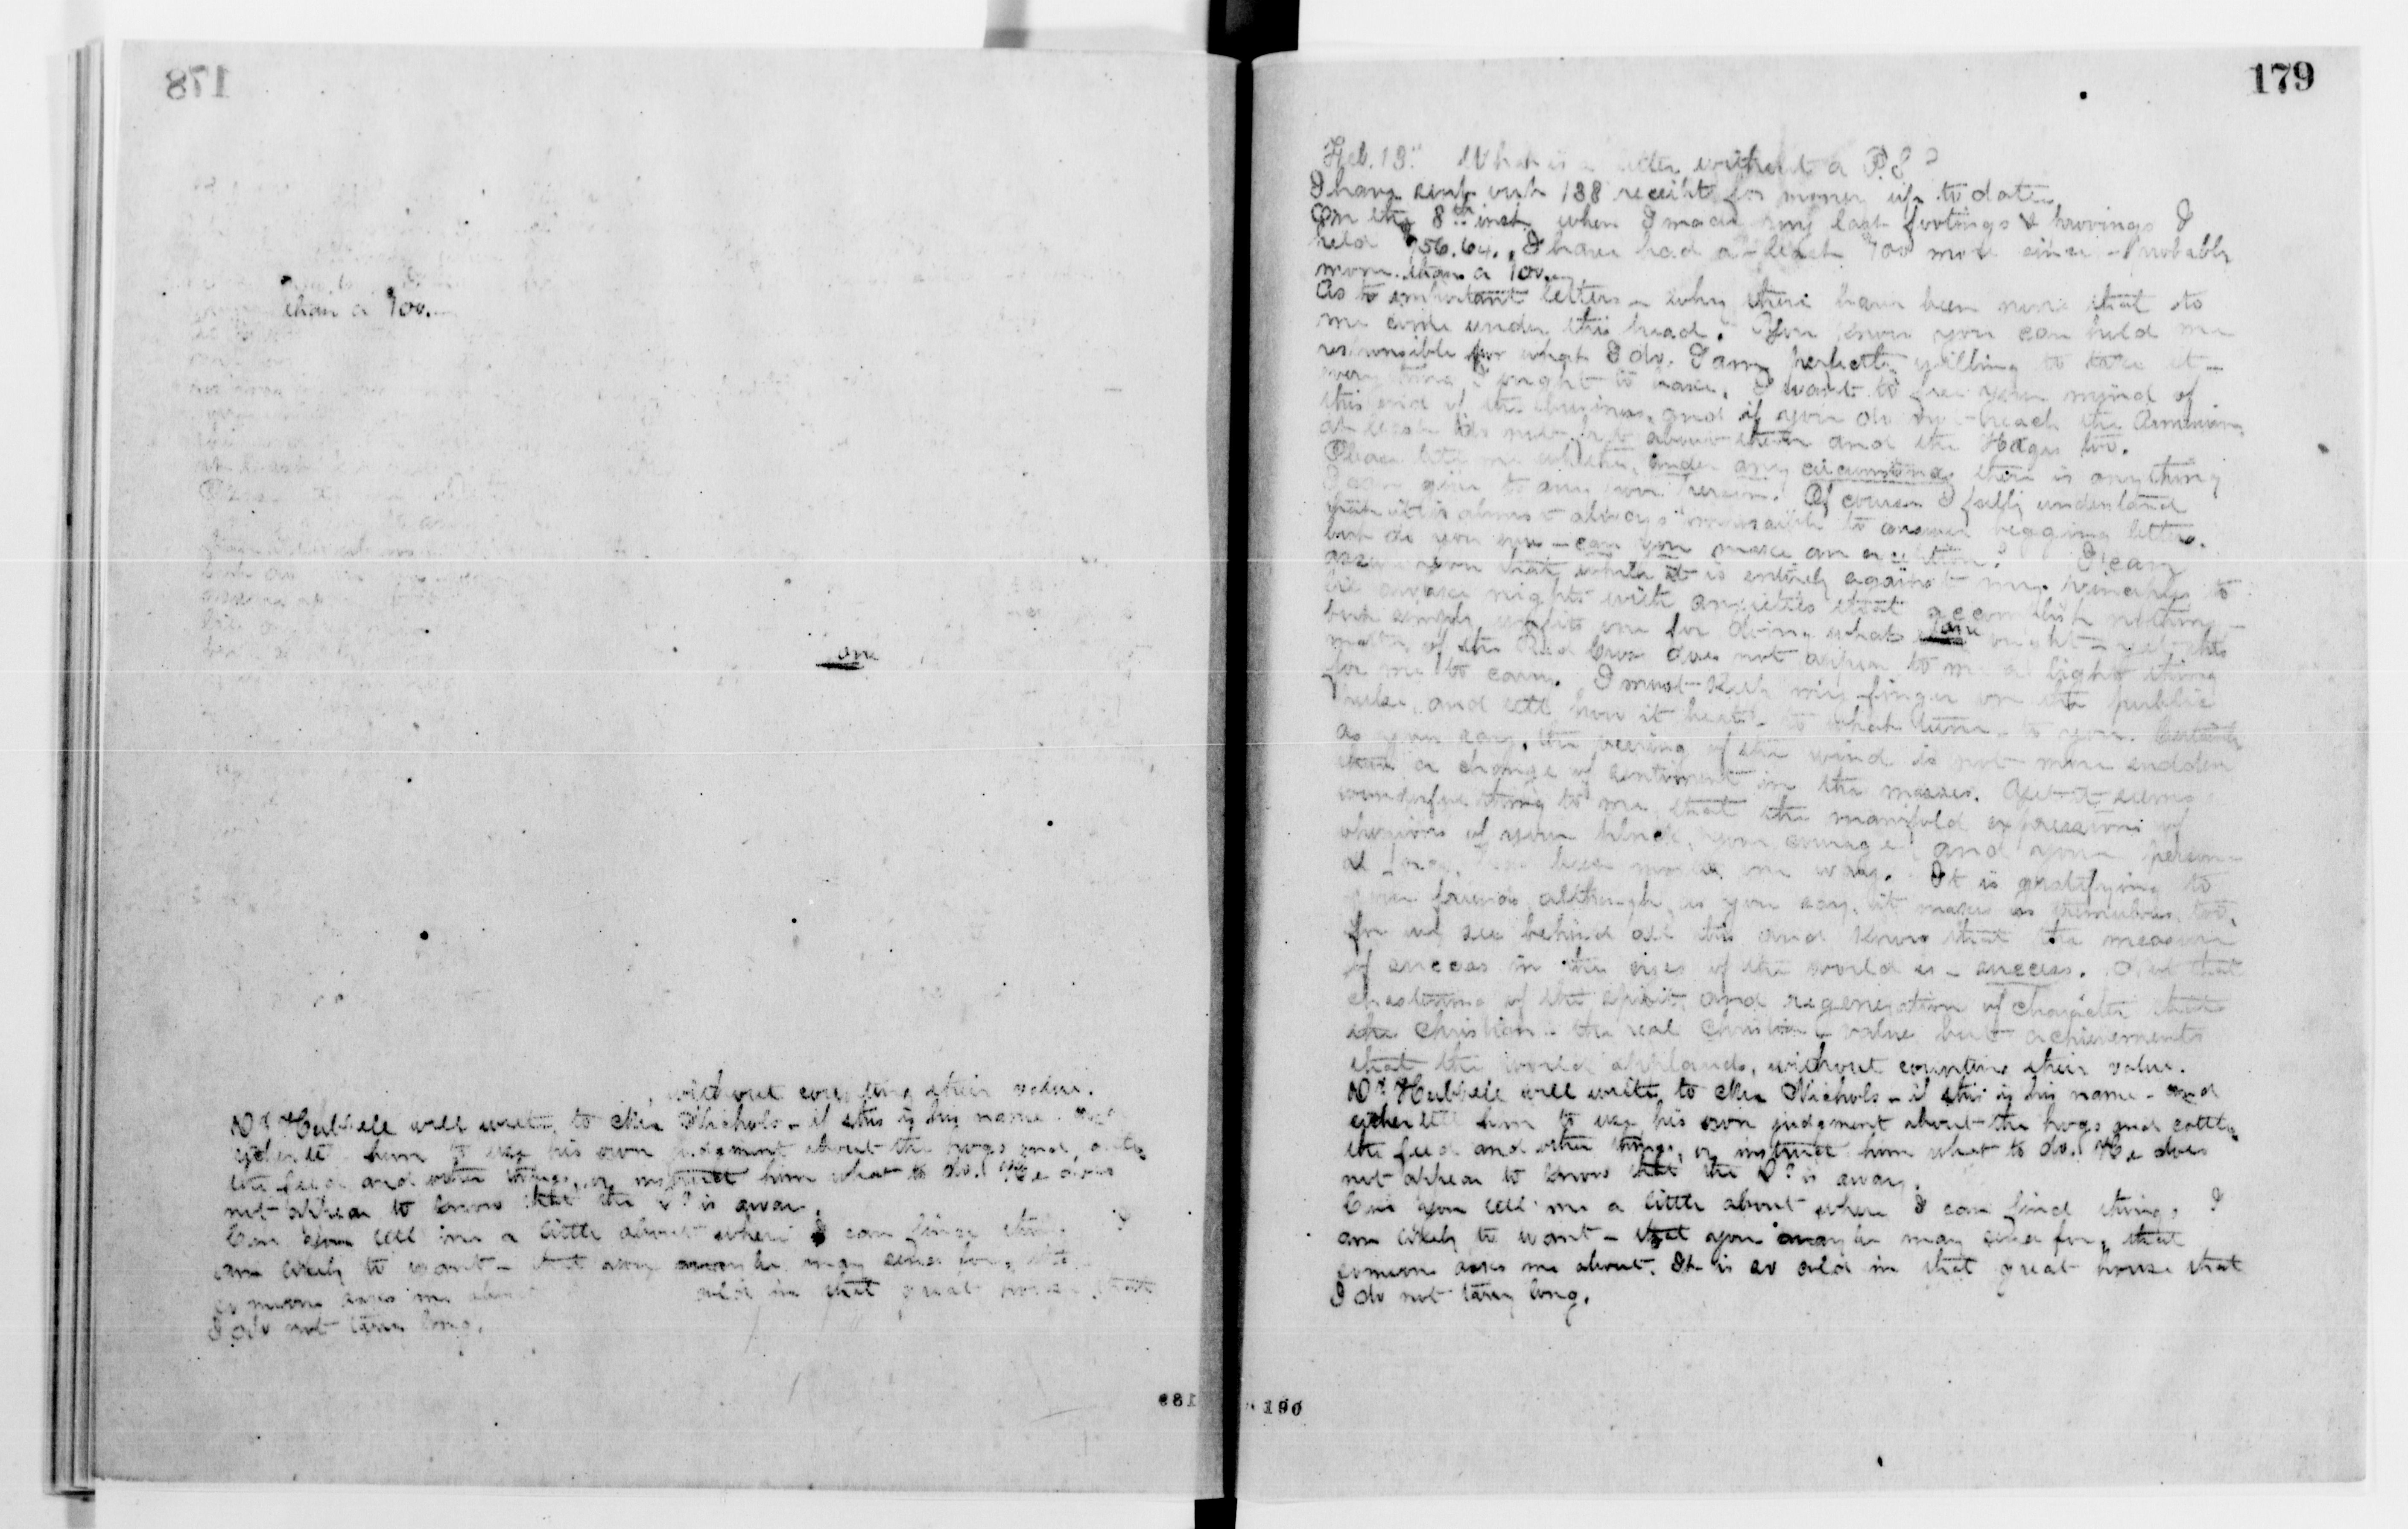 178
than a 100.
one
without counting their value.
Dr Hubbell will write to Mr Nichols - if this is his name - and
either tell him to use his own judgment about the hogs and cattle
the feed and other things, or instruct him what to do. He does
not appear to know that the Dr is away.
Can you tell me a little about where I can find things I
am likely to want - that you maybe may send for, that
someone asks me about. cold in that great house that
I do not tarry long.
189
179
Feb. 13" What is a letter without a P.S?
I have sent out 138 receipts for money up to date.
On the 8th inst, when I made my last footings & provings I
held 956.64. I have had at least 100 more since - probably
more than a 100.
As to important letters - why there have been none that to
me come under this head. You know you can hold me
responsible for what I do. I am perfectly willing to take it -
everything I ought to take. I want to free your mind of
this end of the business, and if you do reach the Armenians
at least do not about them and the Hages too.
Please let me whether, under any circumstance there is anything
I can give to any poor person. Of course I fully understand
that it is almost always impossible to answer begging letters,
but do you ever - can you make an exception? I can
assure you that, while it is entirely against my principles to
lie awake nights with anxieties that accomplish nothing -
but simply unfits one for doing what one ought - yet this
matter of the Red Cross does not appear to me a light thing
for me to carry. I must keep my finger on the public
pulse, and tell how it beats - to what tune - to you. Certainly
as you say, the veering of the wind is not more sudden
than a change of sentiment in the masses. Yet it seems
wonderful thing to me that the manifold expressions of
of your pluck, your courage and your person-
al been one way. It is gratifying to
your friends although, as you say, it makes us tremulous too,
for we see behind all this and know that the measure
of success in the eyes of the world is - success. Not that
chastening of the spirit, and regeneration of character that
the Christian - the real Christian - value but achievements
that the world applauds, without counting their value.
Dr Hubbell will write to Mr Nichols - if this is his name - and
either tell him to use his own judgment about the hogs and cattle
the feed and other things, or instruct him what to do. He does
not appear to know that the Dr is away.
Can you tell me a little about where I can find things I
am likely to want - that you maybe may send for, that
someone asks me about. It is so cold in that great house that
I do not tarry long.
190